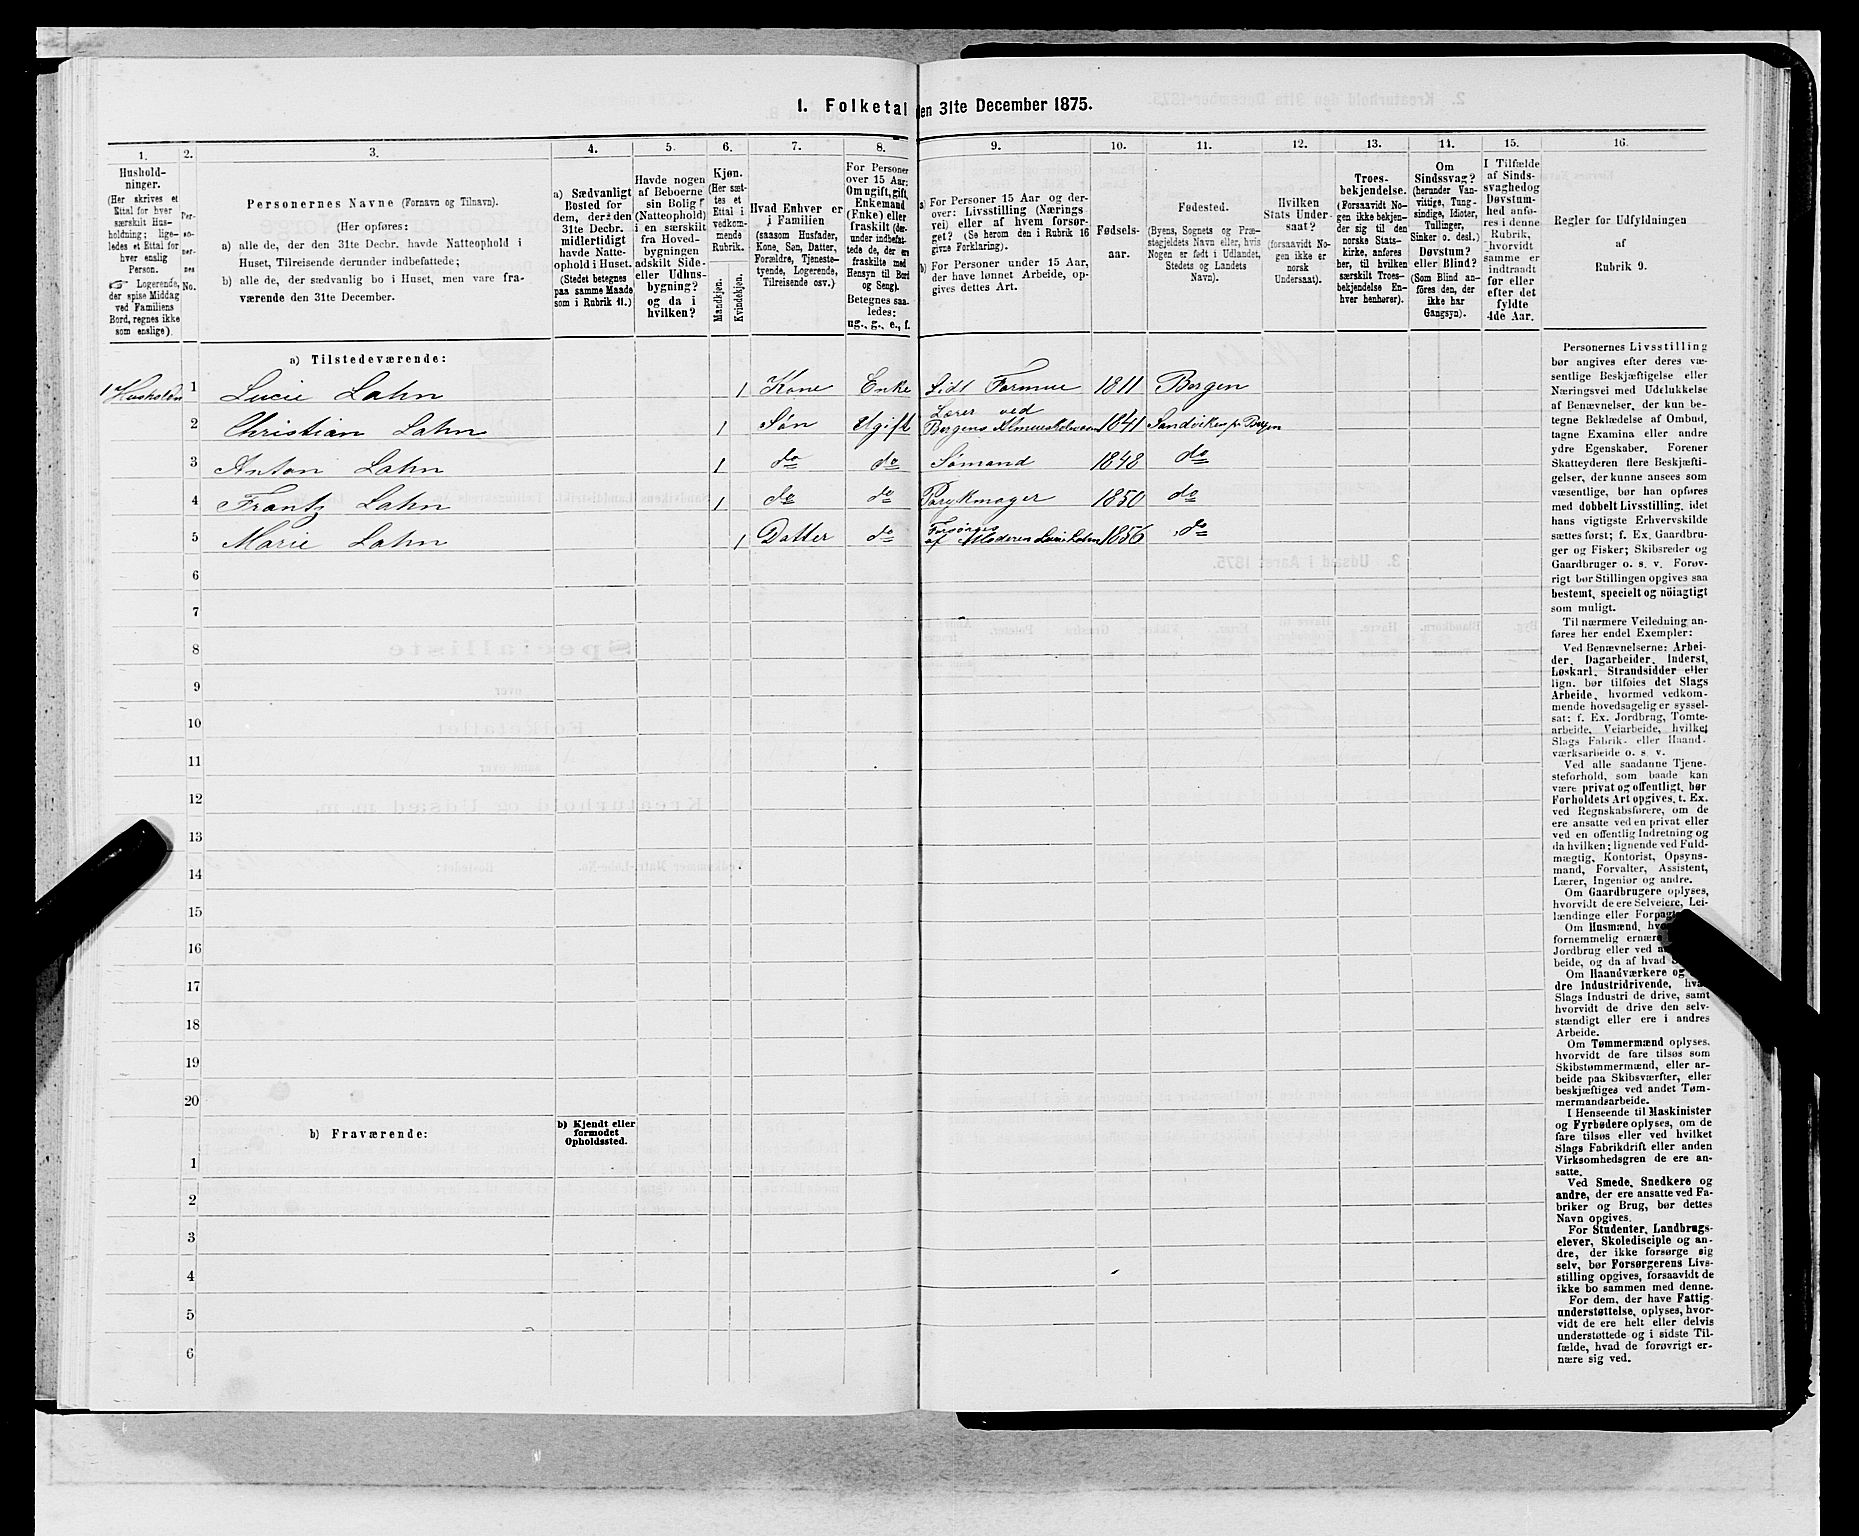 1. Folketal den 31te December 1875.
1.
Hushold-
ninger.
(Her skrives et
Ettal for hver
særskilt Hus-
holdning; lige-
ledes et Ettal for
hver enslig
Person.
☞ Logerende,
der spise Middag
ved Familiens
Bord, regnes ikke
som enslige).
2.
Per-
so-
ner-
nes
No.
3.
Personernes Navne (Fornavn og Tilnavn).
(Her opføres:
a) alle de, der den 31te Decbr. havde Natteophold i
Huset, Tilreisende derunder indbefattede;
b) alle de, der sædvanlig bo i Huset, men vare fra-
værende den 31te December.
4.
a) Sædvanligt
Bosted for
dem, der den
31te Decbr.
midlertidigt
havde Natte-
ophold i Huset.
(Stedet betegnes
paa samme Maade
som i Rubrik 11.)
5.
Havde nogen
af Beboerne
sin Bolig
(Natteophold)
i en særskilt
fra Hoved-
bygningen
adskilt Side-
eller Udhus-
bygning?
og da i
hvilken?
6.
Kjøn.
(Her sæt-
tes et
Ettal i
vedkom-
mende
Rubrik.
Mandkjøn.
Kvindekjøn.
7.
Hvad Enhver er
i Familien
(saasom Husfader,
Kone, Søn, Datter,
Forældre, Tjeneste-
tyende, Logerende,
Tilreisende osv.)
8.
For Personer
over 15 Aar:
Om ugift, gift,
Enkemand
(Enke) eller
fraskilt (der-
under indbefat-
tede de, der ere
fraskilte med
Hensyn til Bord
og Seng).
Betegnes saa-
ledes:
ug., g., e., f.
9.
a) For Personer 15 Aar og der-
over: Livsstilling (Nærings
vei) eller af hvem forsør-
get? (Se herom den i Rubrik 16
givne Forklaring).
b) For Personer under 15 Aar,
der have lønnet Arbeide, op-
gives dettes Art.
10.
Fødsels-
aar.
11.
Fødested.
(Byens, Sognets og Præ-
stegjeldets Navn eller, hvis
Nogen er født i Udlandet,
Stedets og Landets
Navn).
12.
Hvilken
Stats Under-
saat?
(forsaavidt No-
gen ikke er
norsk
Undersaat).
13.
Troes-
bekjendelse.
(Forsaavidt No-
gen ikke bekjen-
der sig til den
norske Stats-
kirke, anføres
her, til hvilken
særskilt Troes-
bekjendelse En-
hver henhører).
14.
Om
Sindssvag?
(herunder Van-
vittige, Tung-
sindige, Idioter,
Tullinger,
Sinker o. desl.)
Døvstum?
eller Blind?
(Som Blind an-
føres den, der
ikke har
Gangsyn).
15.
I Tilfælde
af Sinds-
svaghed og
Døvstum-
hed anfø-
res i denne
Rubrik,
hvorvidt
samme er
indtraadt
før eller
efter det
fyldte
4de Aar.
16.
Regler for Udfyldningen
af
Rubrik 9.
a) Tilstedeværende:
1 Hushold. 1 Lucie Lahn 1 Kone Enke Lidt Formue 1811 Bergen
2 Christian Lahn 1 Søn Ugift Lærer ved Bergens Almueskolevæsen 1841 Sandviken pr Bergen
3 Anton Lahn 1 do do Sømand 1848 do
4 Frantz Lahn 1 do do Parykmager 1850 do
5 Marie Lahn 1 Datter do Forsørges af Moderen Lucie Lahn 1856 do
6
7
8
9
10
11
12
13
14
15
16
17
18
19
20
b) Fraværende:
b) Kjendt eller
formodet
Opholdssted.
1
2
3
4
5
6
Personernes Livsstilling
bør angives efter deres væ-
sentlige Beskjæftigelse eller
Næringsvei med Udelukkelse
af Benævnelser, der kun be-
tegne Beklædelse af Ombud,
tagne Examina eller andre
ydre Egenskaber. Forener
Skatteyderen flere Beskjæfti-
gelser, der kunne ansees som
væsentlige, bør han opføres
med dobbelt Livsstilling, idet
hans vigtigste Erhvervskilde
sættes først; f. Ex. Gaardbru-
ger og Fisker; Skibsreder og
Gaardbruger o. s. v. Forøv-
rigt bør Stillingen opgives saa
bestemt, specielt og nöiagtigt
som muligt.
Til nærmere Veiledning an-
føres her endel Exempler:
Ved Benævnelserne: Arbei-
der, Dagarbeider, Inderst,
Løskarl, Strandsidder eller
lign. bør tilføies det Slags
Arbeide, hvormed vedkom-
mende hovedsagelig er syssel-
sat: f. Ex. Jordbrug, Tomte-
arbeide, Veiarbeide, hvilket
Slags Fabrik- eller Haand-
værksarbeide o. s. v.
Ved alle saadanne Tjene-
steforhold, som baade kan
være privat og offentligt, bør
Forholdets Art opgives, t. Ex.
ved Regnskabsførere, om de
ere ansatte ved en privat eller
ved en offentlig Indretning og
da hvilken; lignende ved Fuld-
mægtig, Kontorist, Opsyns-
mand, Forvalter, Assistent,
Lærer, Ingeniør og andre.
Om Gaardbrugere oplyses,
hvorvidt de ere Selveiere, Lei-
lændinge eller Forpagt
Om Husmænd, hvo
fornemmelig ernære
Jordbrug eller ved a
beide, og da af hvad
Om Haandværkere og
dre Industridrivende, hva
Slags Industri de drive, samt
hvorvidt de drive den selv-
stændigt eller ere i andres
Arbeide.
Om Tømmermænd oplyses,
hvorvidt de fare tilsøs som
Skibstømmermænd, eller ar-
beide paa Skibsværfter, eller
beskjæftiges ved andet Tøm-
mermandsarbeide.
I Henseende til Maskinister
og Fyrbødere oplyses, om de
fare tilsøs eller ved hvilket
Slags Fabrikdrift eller anden
Virksomhedsgren de ere an-
satte.
Ved Smede, Snedkere og
andre, der ere ansatte ved Fa-
briker og Brug, bør dettes
Navn opgives.
For Studenter, Landbrugs-
elever, Skoledisciple og an-
dre, der ikke forsørge sig
selv, bør Forsørgerens Livs-
stilling opgives, forsaavidt de
ikke bo sammen med denne.
For dem, der have Fattig-
understøttelse, oplyses, hvor-
vidt de ere helt eller delvis
understøttede og i sidste Til-
fælde, hvad de forøvrigt er-
nære sig ved.